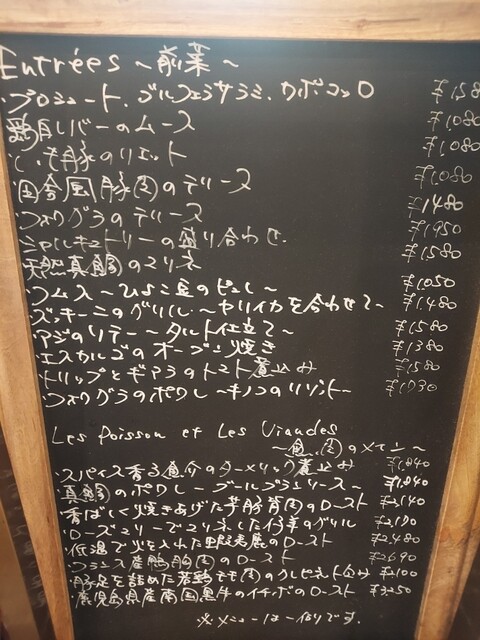 Entrées ~前菜~
・プロシュート、ブルフェラサラミ、カポコッロ ¥158
鶏白レバーのムース ¥1080
豚のリエット ¥1080
田舎風豚肉のテリーヌ ¥1080
フォワグラのテリーヌ ¥1480
シャルキュトリーの盛り合わせ ¥1950
天然真鯛のマリネ ¥1580
フムス~ひよこ豆のピュレ~ ¥1050
ズッキーニのグリル~ヤリイカを合わせて~ ¥1480
アジのリテー~タルト仕立て~ ¥1580
エスカルゴのオーブン焼き ¥1380
トリップとギアラのトマト煮込み ¥1580
フォワグラのポワレ~キノコのリゾット~ ¥1730
Les Poisson et Les Viandes
~魚、肉のメイン~
・スパイス香る魚介のターメリック煮込み ¥1840
真鯛のポワレ~ブールブランソース~ ¥1840
香ばしく焼きあげた芋豚肩肉のロースト ¥2140
・ローズマリーでマリネした仔羊のグリル
・低温で火を入れた蝦夷鹿のロースト ¥2480
・フランス産鴨胸肉のロースト ¥2690
・豚足を詰めた若鶏もも肉のクレピネット包み ¥2100
・鹿児島県産南国黒牛のイチボのロースト ¥3250
※メニューは一例です。